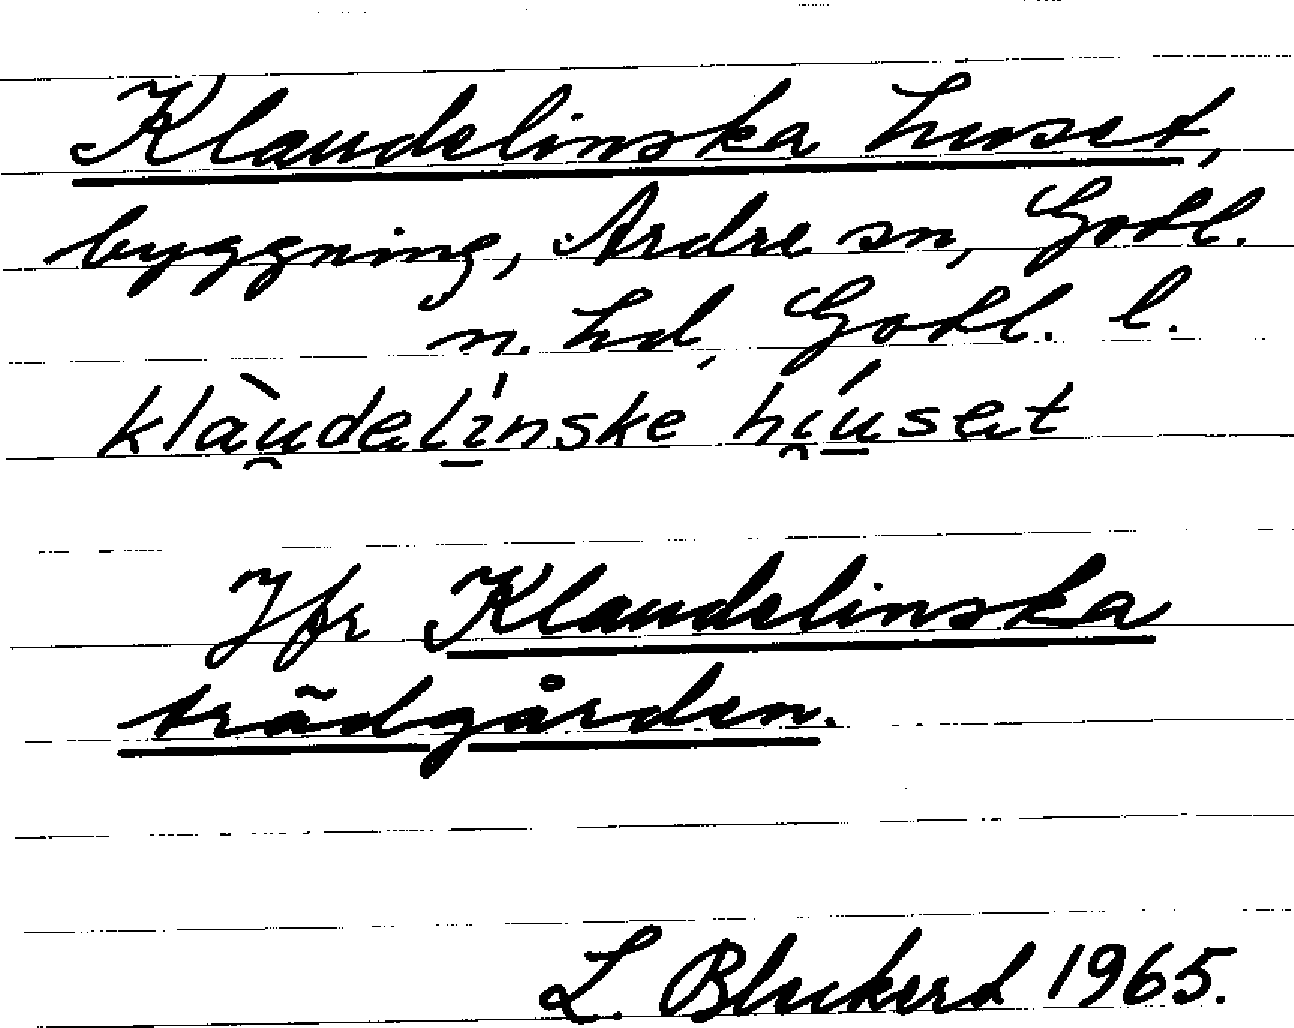 Klaudelinska huset,
byggning, Ardre sn, Gotl.
n. hd, Gotl. l.
klàu̯delínske hi̯úset
Jfr Klaudelinska
trädgården.
L. Bluckert 1965.